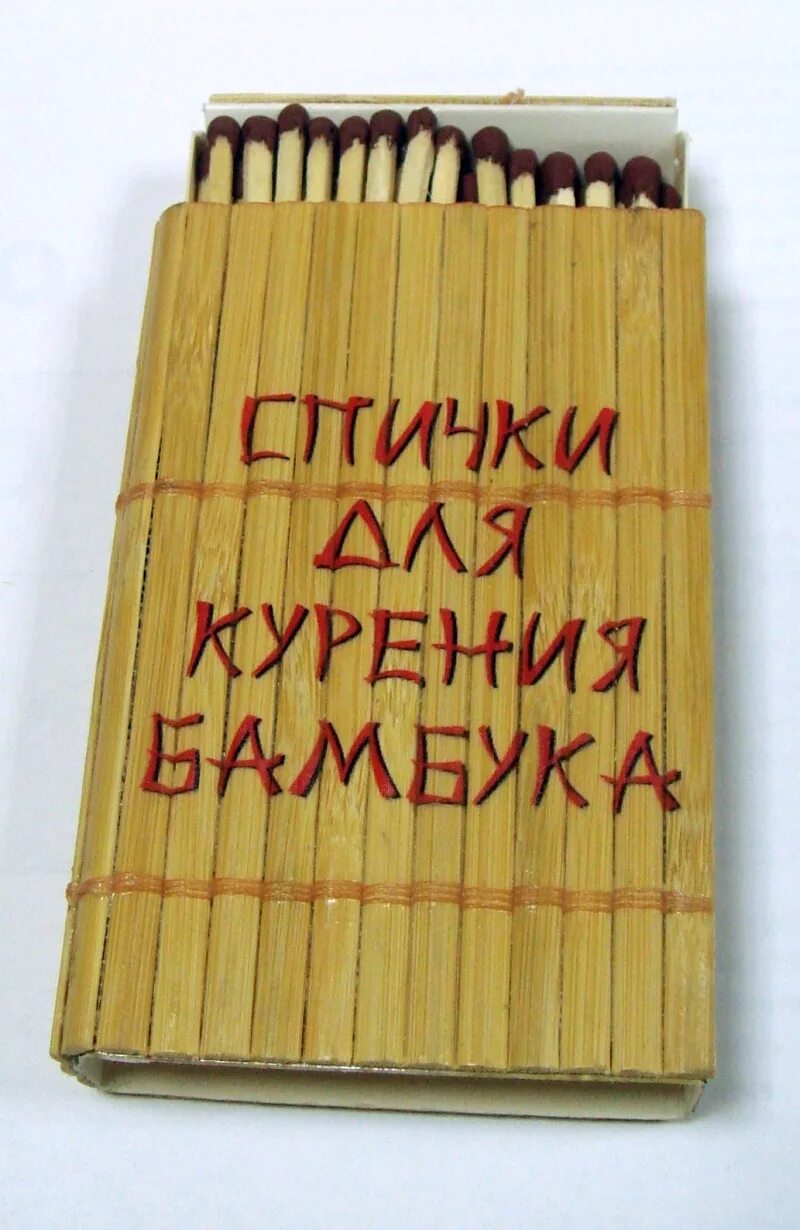 СПИЧКИ
ДЛЯ
КУРЕНИЯ
БАМБУКА